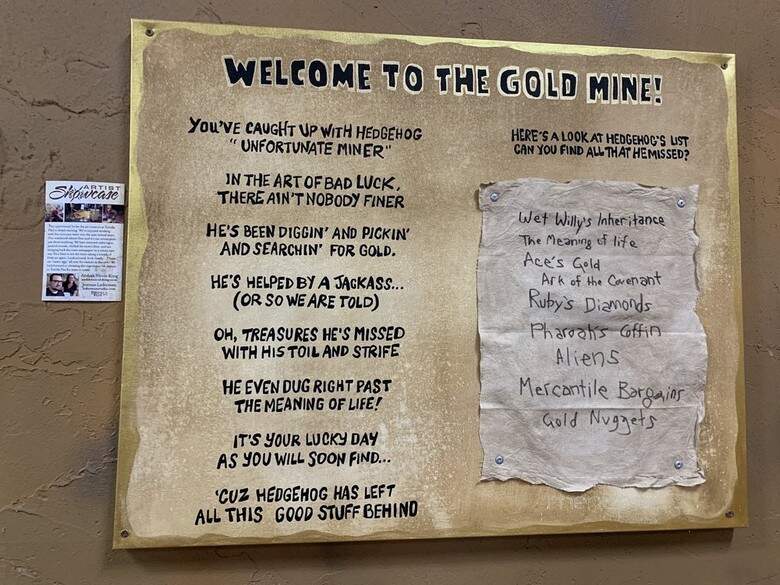 WELCOME TO THE GOLD MINE!
YOU'VE CAUGHT UP WITH HEDGEHOG
"UNFORTUNATE MINER"
IN THE ART OF BAD LUCK,
THERE AIN'T NOBODY FINER
HE'S BEEN DIGGIN' AND PICKIN'
AND SEARCHIN' FOR GOLD.
HE'S HELPED BY A JACKASS...
(OR SO WE ARE TOLD)
OH, TREASURES HE'S MISSED
WITH HIS TOIL AND STRIFE
HE EVEN DUG RIGHT PAST
THE MEANING OF LIFE!
IT'S YOUR LUCKY DAY
AS YOU WILL SOON FIND...
'CUZ HEDGEHOG HAS LEFT
ALL THIS GOOD STUFF BEHIND
HERE'S A LOOK AT HEDGEHOG'S LIST
CAN YOU FIND ALL THAT HE MISSED?
Wet Willy's Inheritance
The Meaning of life
Ace's Gold
Ark of the Covenant
Ruby's Diamonds
Pharoah's Coffin
Aliens
Mercantile Bargains
Gold Nuggets
ARTIST
Showcase